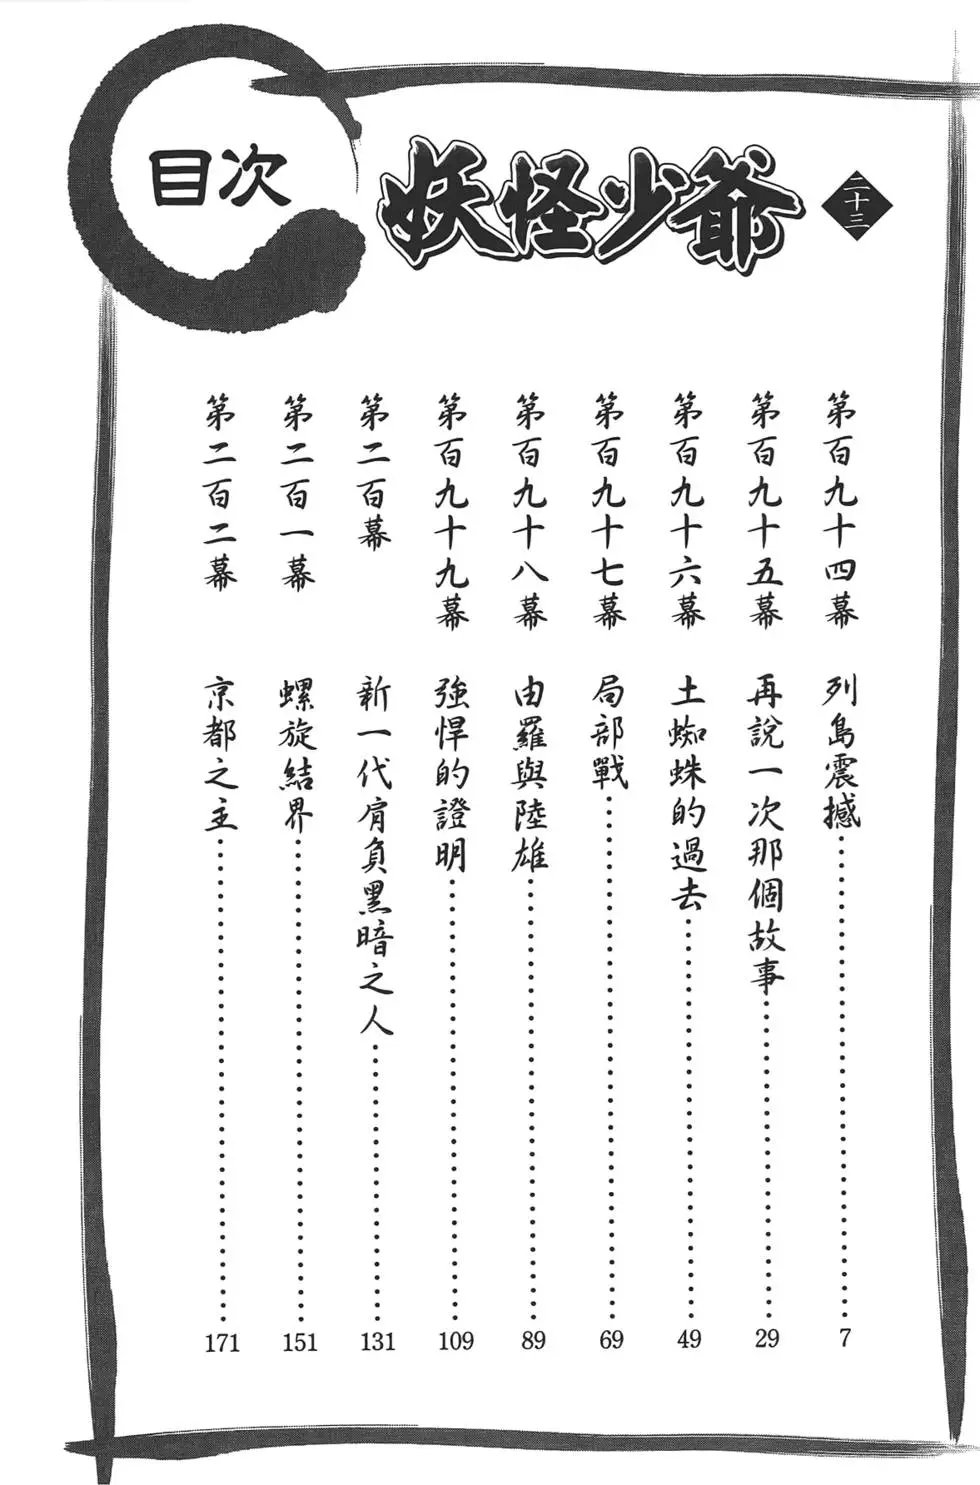 目次
妖怪少爺
二十三
第百九十四幕 列島震撼……7
第百九十五幕 再說一次那個故事……29
第百九十六幕 土蜘蛛的過去……49
第百九十七幕 局部戰……69
第百九十八幕 由羅與陸雄……89
第百九十九幕 強悍的證明……109
第二百幕 新一代肩負黑暗之人……131
第二百一幕 螺旋結界……151
第二百二幕 京都之主……171